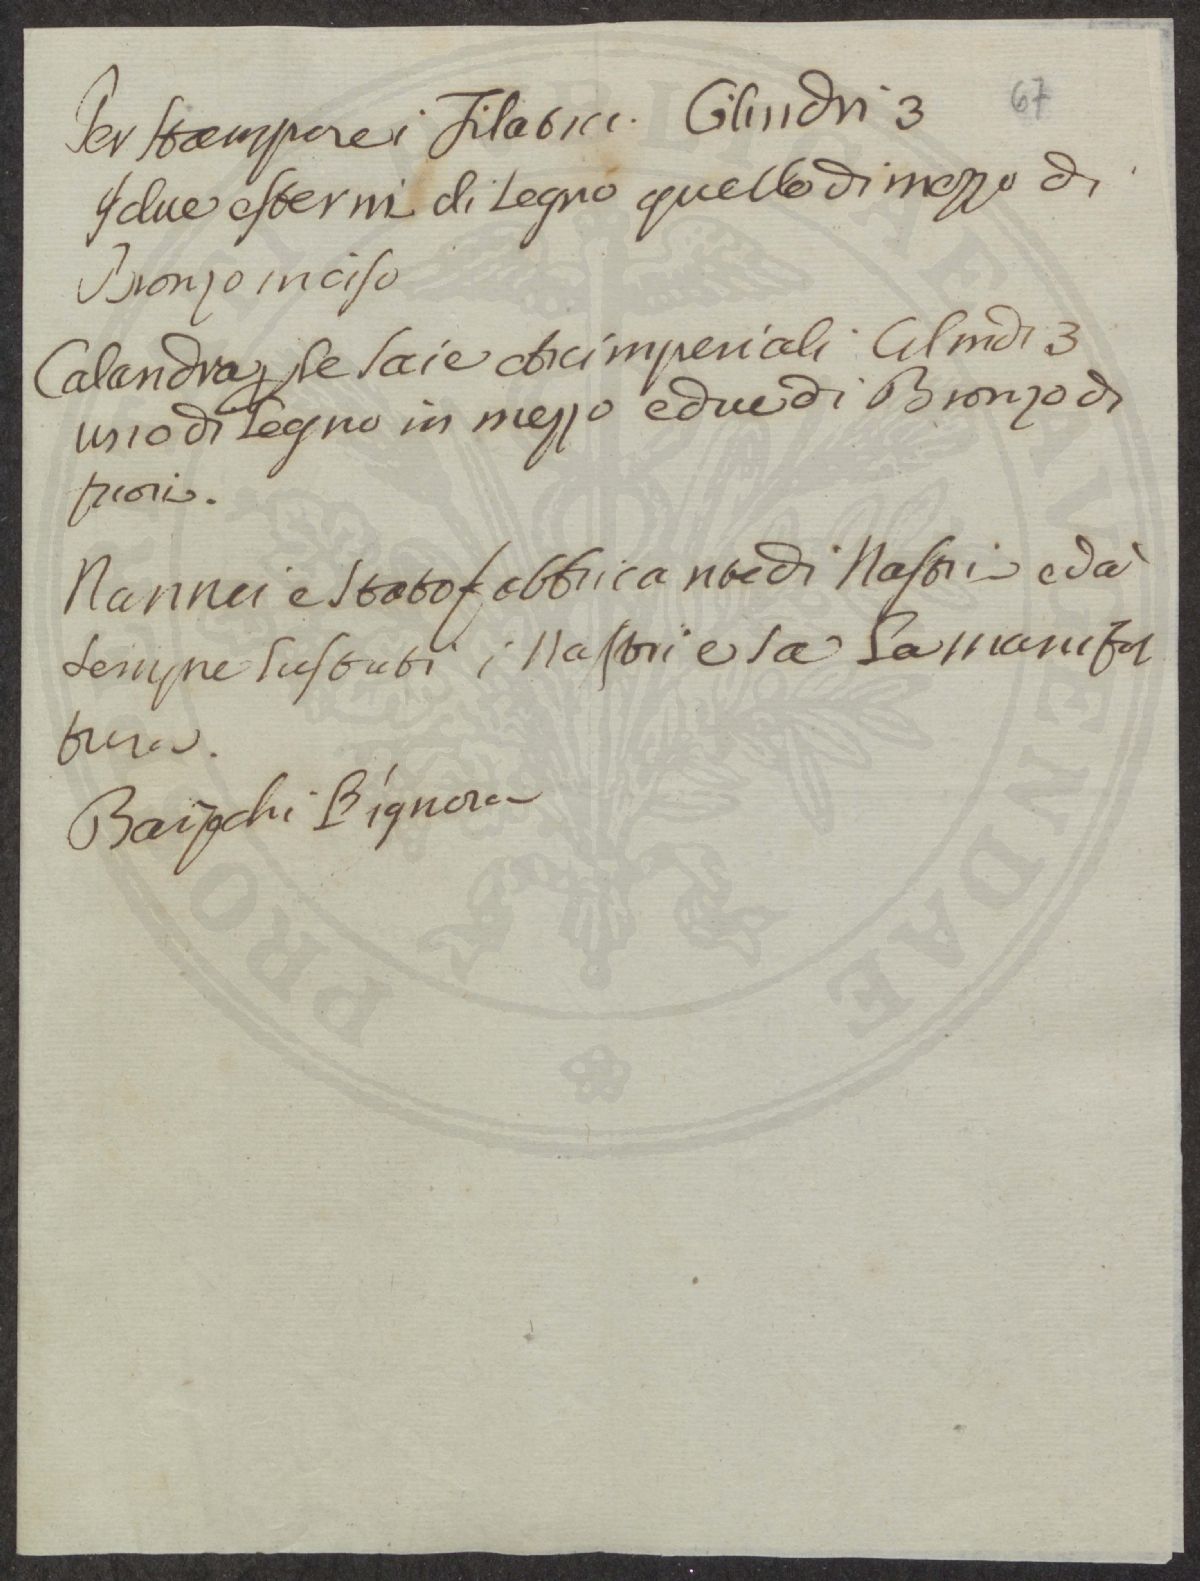 67
Per stampare i Filaticci. Cilindri 3
I due esterni di Legno quello di mezzo di
Bronzo inciso
Calandra p le Saie imperiali. Cilindi 3
uno di Legno in mezzo e due di Bronzo di
fuori.
Nannei e stato fabbricante di Nastri e da
sempre lustrati i Nastri e sa La manifat
tura.
Bignora
PRO PUBLICAE AUGENDAE